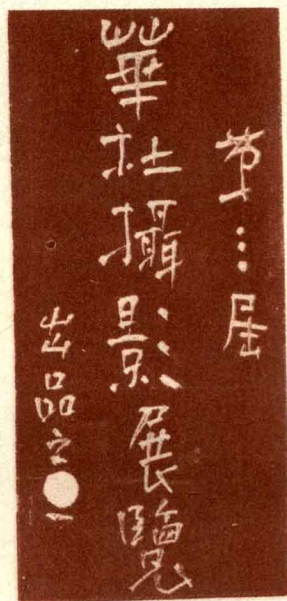 第三屆
華社攝影展覽
出品之●一